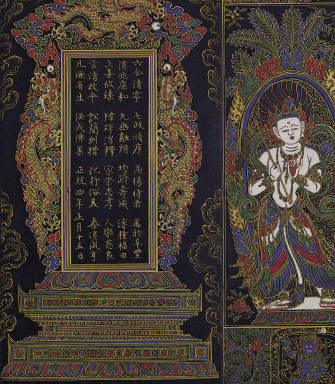 六合清寧 七政順序 雨暘時若 萬物阜豐
億兆康和 九幽融朗 均躋壽域 溥種福田
上善攸臻 障礙消釋 家崇忠孝 人樂慈良
官清政平 訟簡刑措 化行俗美 泰道咸亨
凡厥有生 俱成佛果 正統四年正月十五日